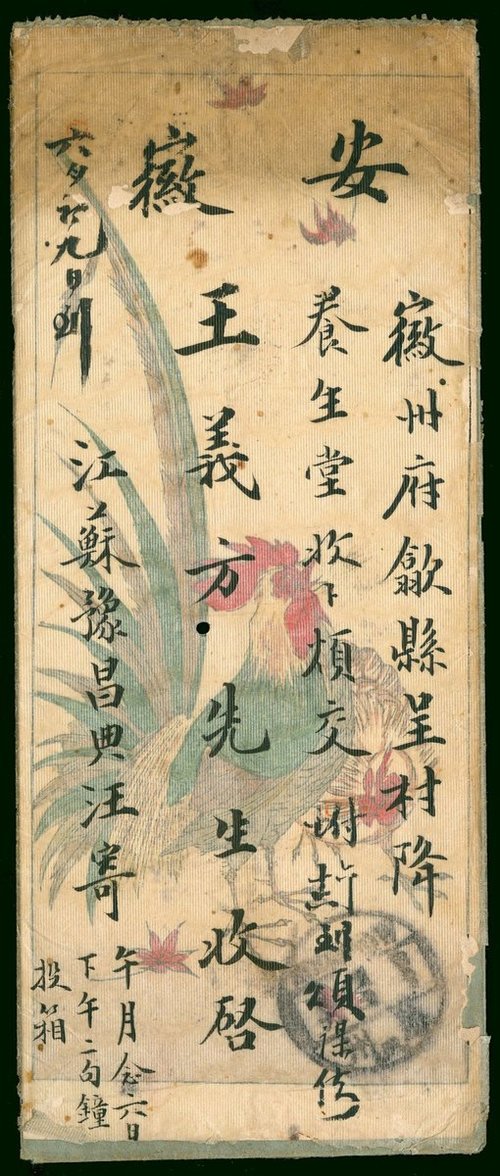 安徽
徽州府歙縣呈村降
養生堂收下煩交坿
王義方先生收啓
江蘇豫昌典汪寄
午月念六日
下午二句鐘
投箱
六月初九日到